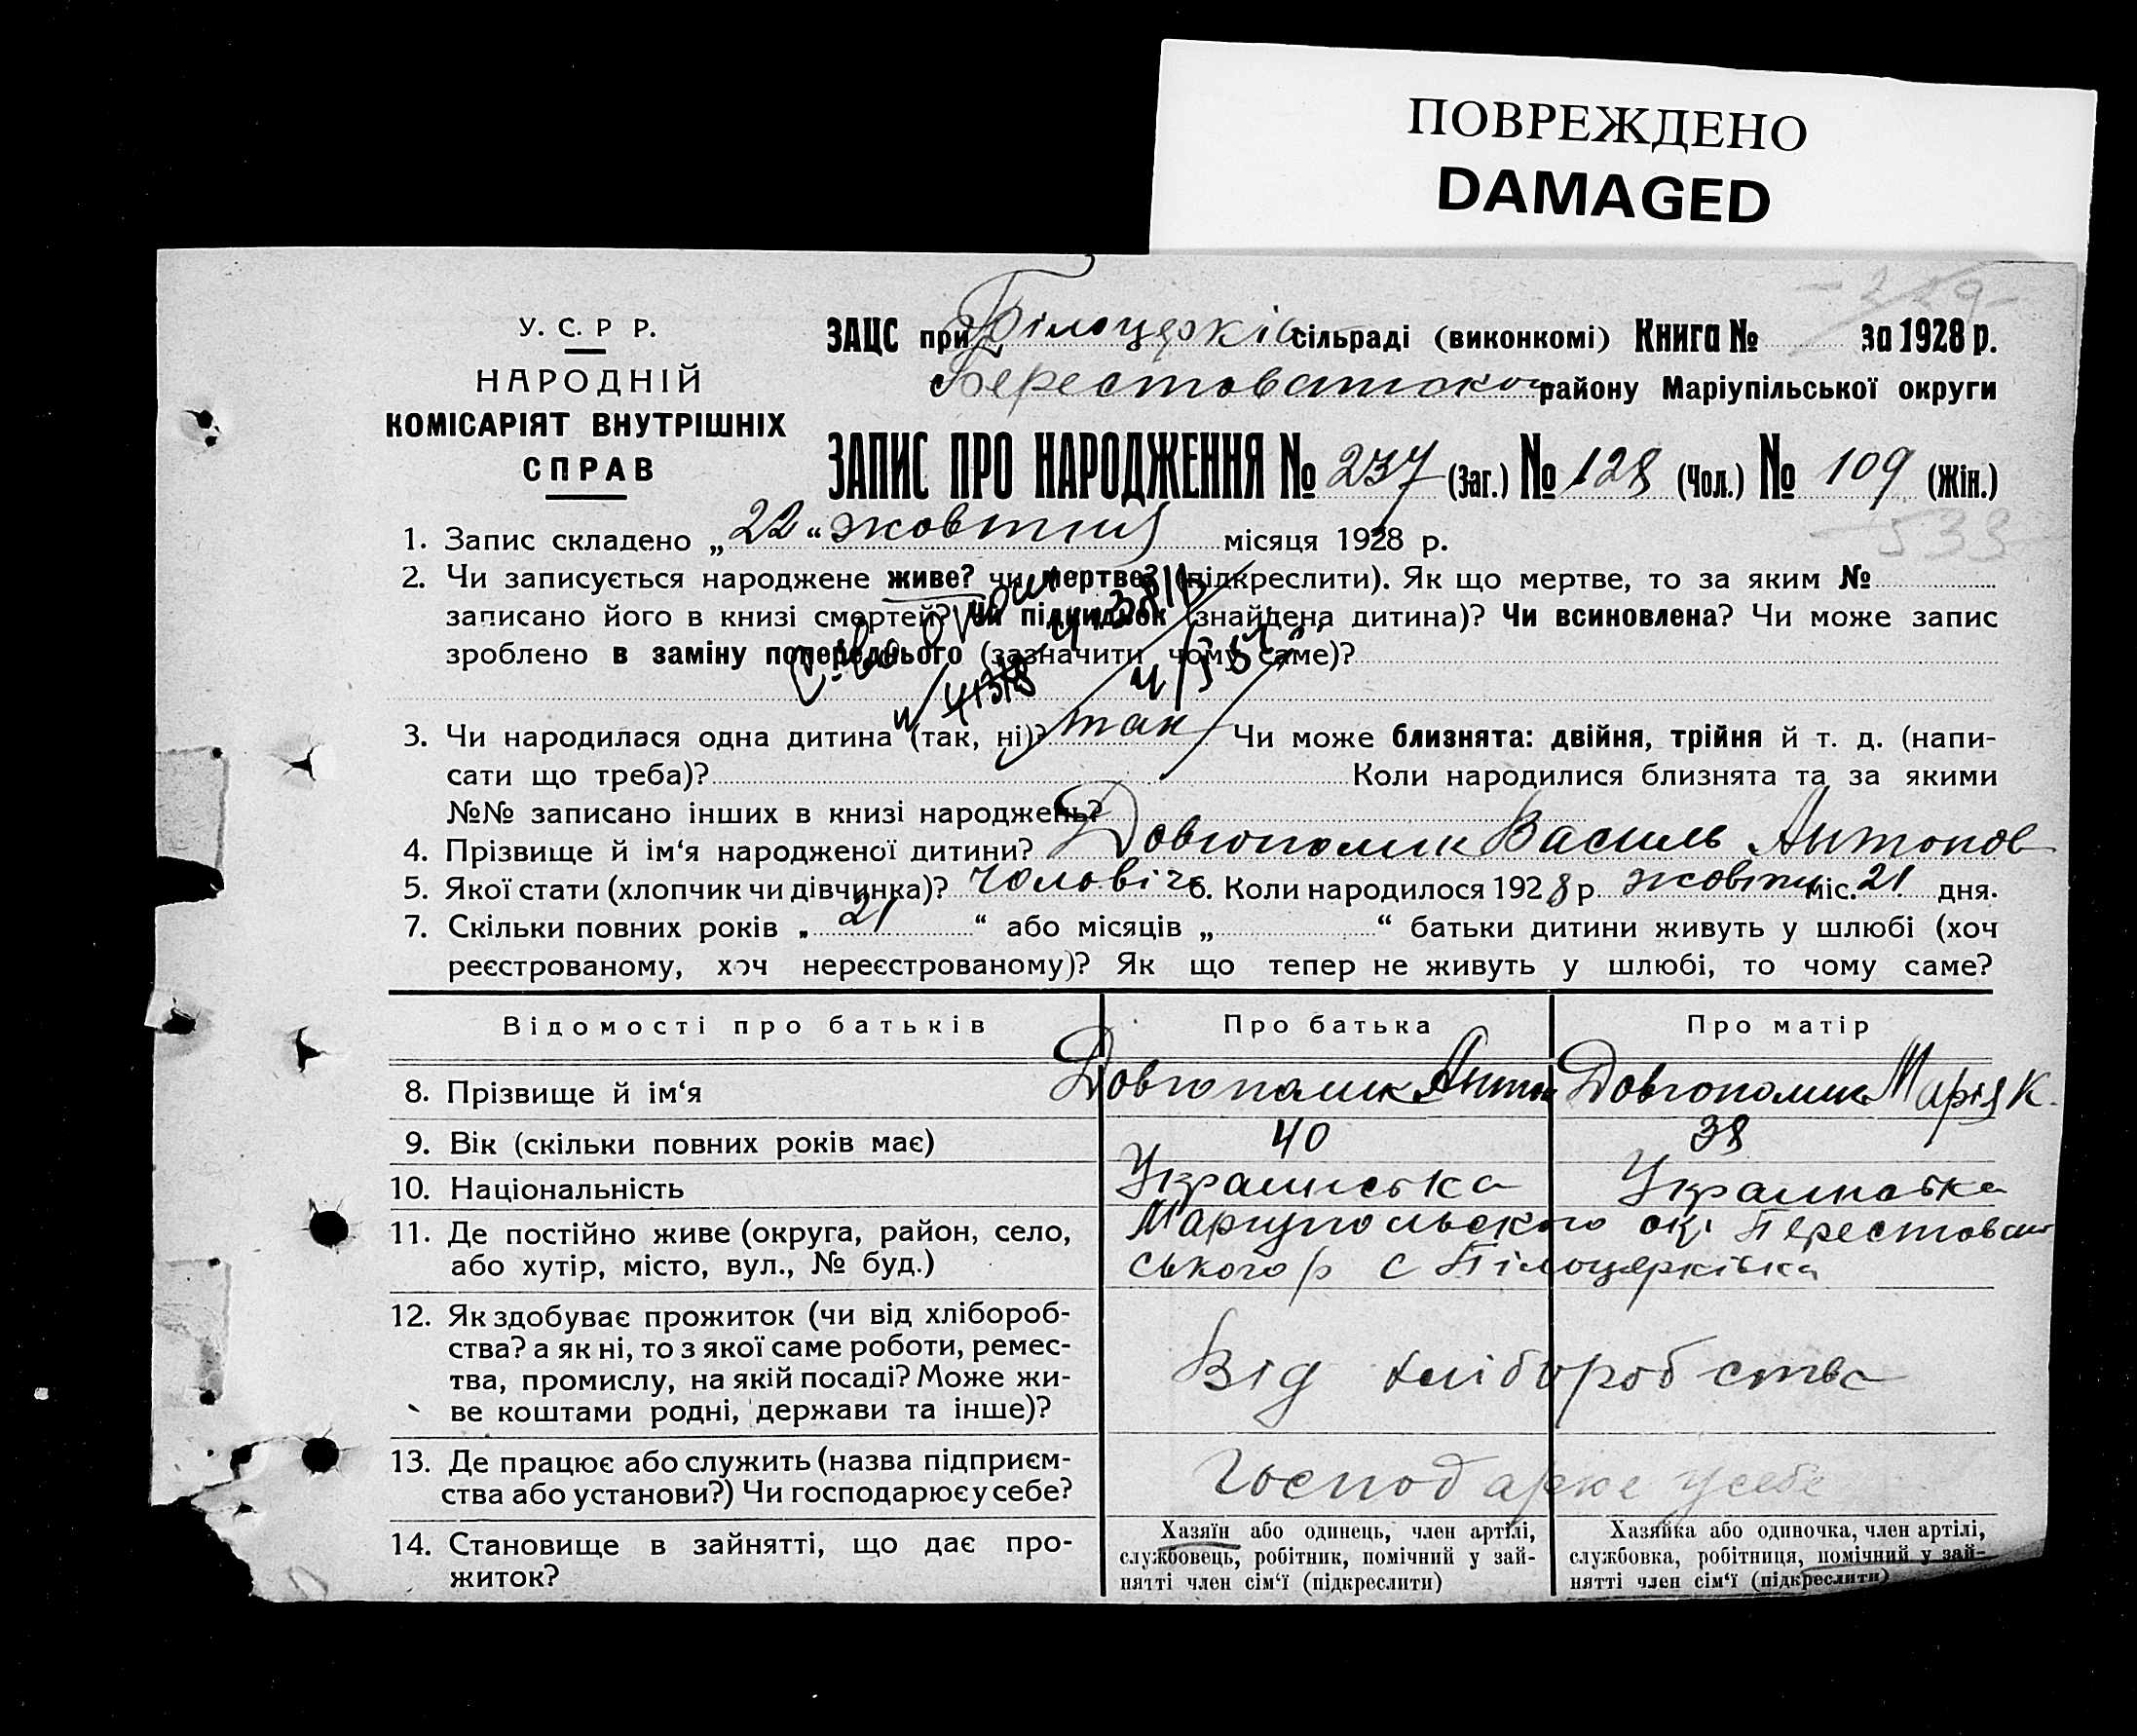 ПОВРЕЖДЕНО
DAMAGED
-229-
У. С. Р Р.
НАРОДНІЙ
КОМІСАРІЯТ ВНУТРІШНІХ
СПРАВ
ЗАЦС при Білоцерків сільраді (виконкомі) Книга № за 1928 р.
Берестоватском району Маріупільської округи
ЗАПИС ПРО НАРОДЖЕННЯ № 237 (Заг.) № 128 (Чол.) № 109 (Жін.)
1. Запис складено „22“ жовтня місяця 1928 р.
2. Чи записується народжене живе? чи мертве? (підкреслити). Як що мертве, то за яким №
записано його в книзі смертей? Чи підкидьок (знайдена дитина)? Чи всиновлена? Чи може запис
зроблено в заміну попереднього (зазначити чому саме)?
3. Чи народилася одна дитина (так, ні)? так Чи може близнята: двійня, трійня й т. д. (напи-
сати що треба)? Коли народилися близнята та за якими
№№ записано інших в книзі народжень?
4. Прізвище й ім‘я народженої дитини? Довгополик Василь Антонов
5. Якої стати (хлопчик чи дівчинка)? Чоловіч 6. Коли народилося 1928 р жовтня міс. 21 дня.
7. Скільки повних років „21“ або місяців „ “ батьки дитини живуть у шлюбі (хоч
реєстрованому, хоч нереєстрованому)? Як що тепер не живуть у шлюбі, то чому саме?
Відомості про батьків Про батька Про матір
8. Прізвище й ім‘я Довгополик Антон Довгополик Марія К.
9. Вік (скільки повних років має) 40 38
10. Національність Украинська Украинська
11. Де постійно живе (округа, район, село, Мариупольского окр. Берестоват
або хутір, місто, вул., № буд.) ського р с Білоцерківка
12. Як здобуває прожиток (чи від хлібороб-
ства? а як ні, то з якої саме роботи, ремес-
тва, промислу, на якій посаді? Може жи- Від хліборобства
ве коштами родні, держави та інше)?
13. Де працює або служить (назва підприєм-
ства або установи?) Чи господарює у себе? Господарює у себе
14. Становище в зайнятті, що дає про-
житок?
Хазяїн або одинець, член артілі,
службовець, робітник, помічний у зай-
нятті член сім‘ї (підкреслити)
Хазяйка або одиночка, член артілі,
службовка, робітниця, помічний у зай-
нятті член сім‘ї (підкреслити)